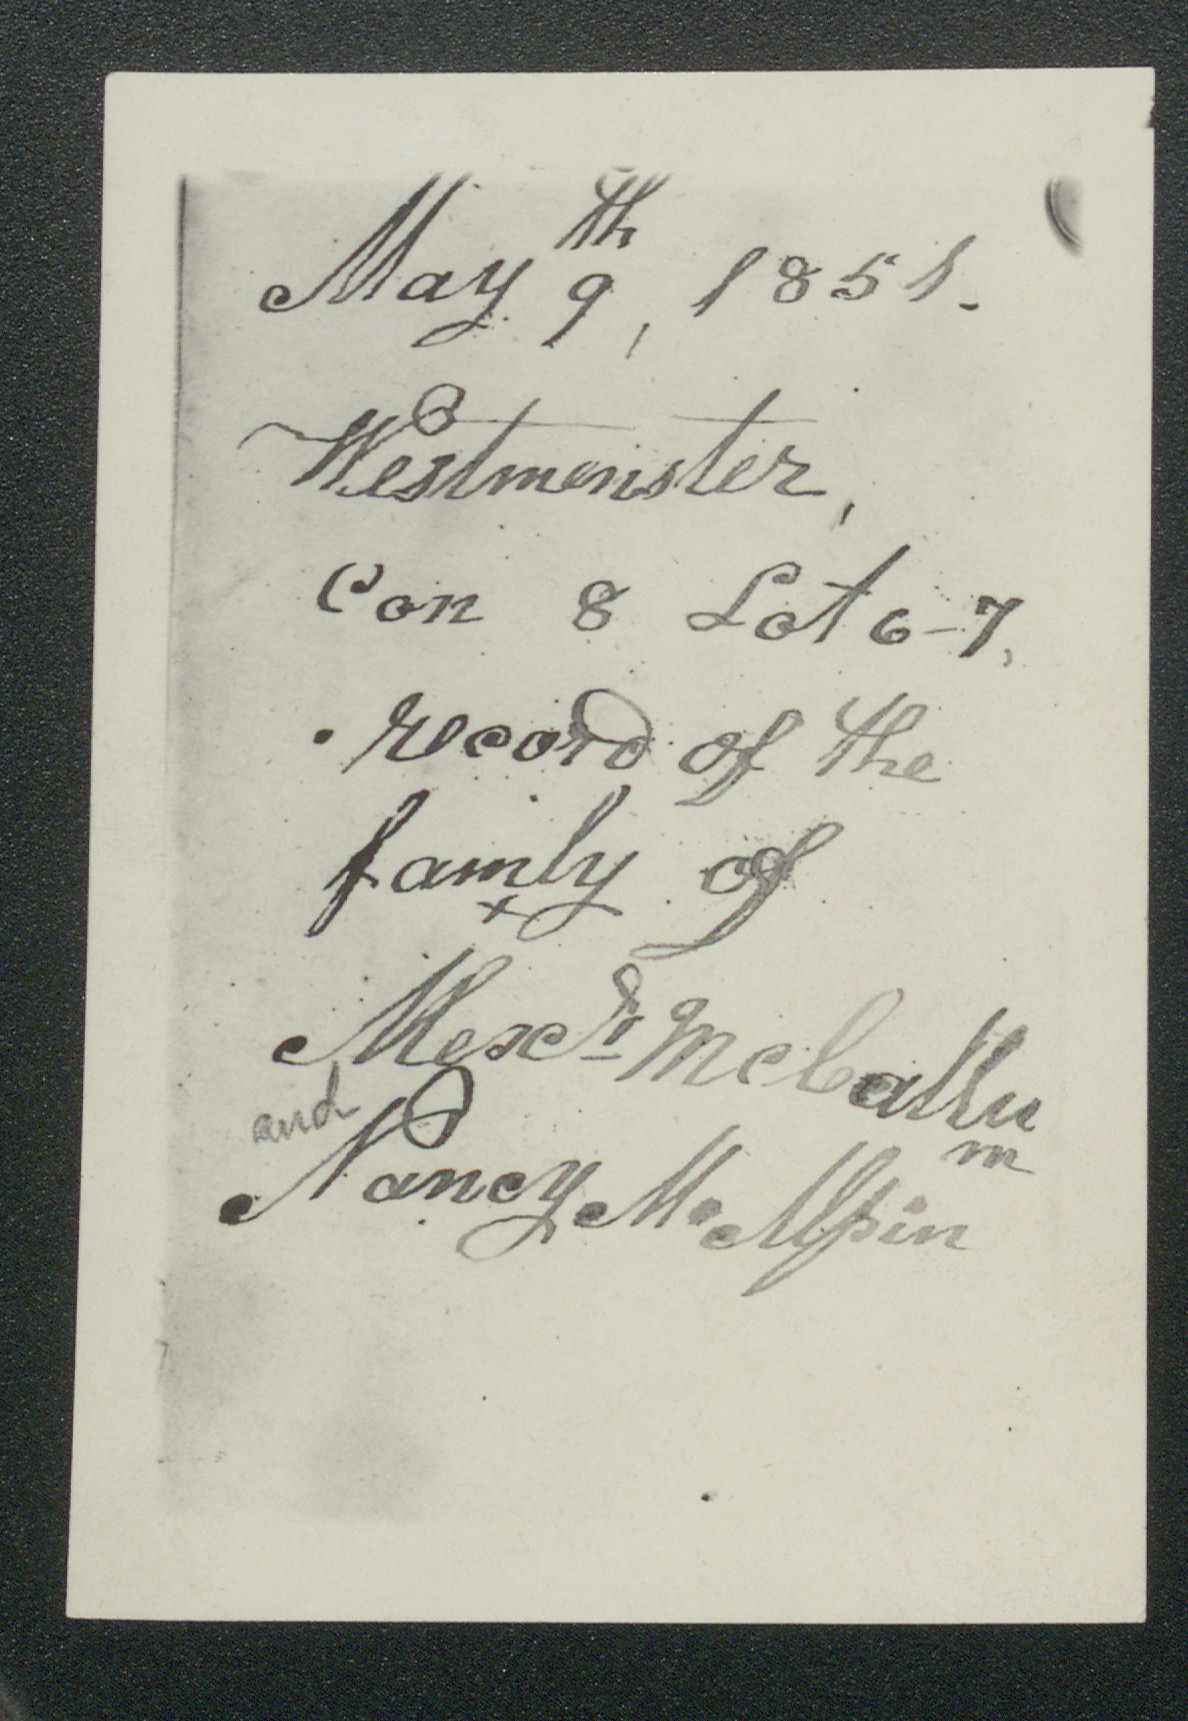 May 9th, 1851.
Westmenster,
Con 8 Lot 6-7,
record of the
famly of
x
Alexdr McCallum
and
Nancy Mc Alpin